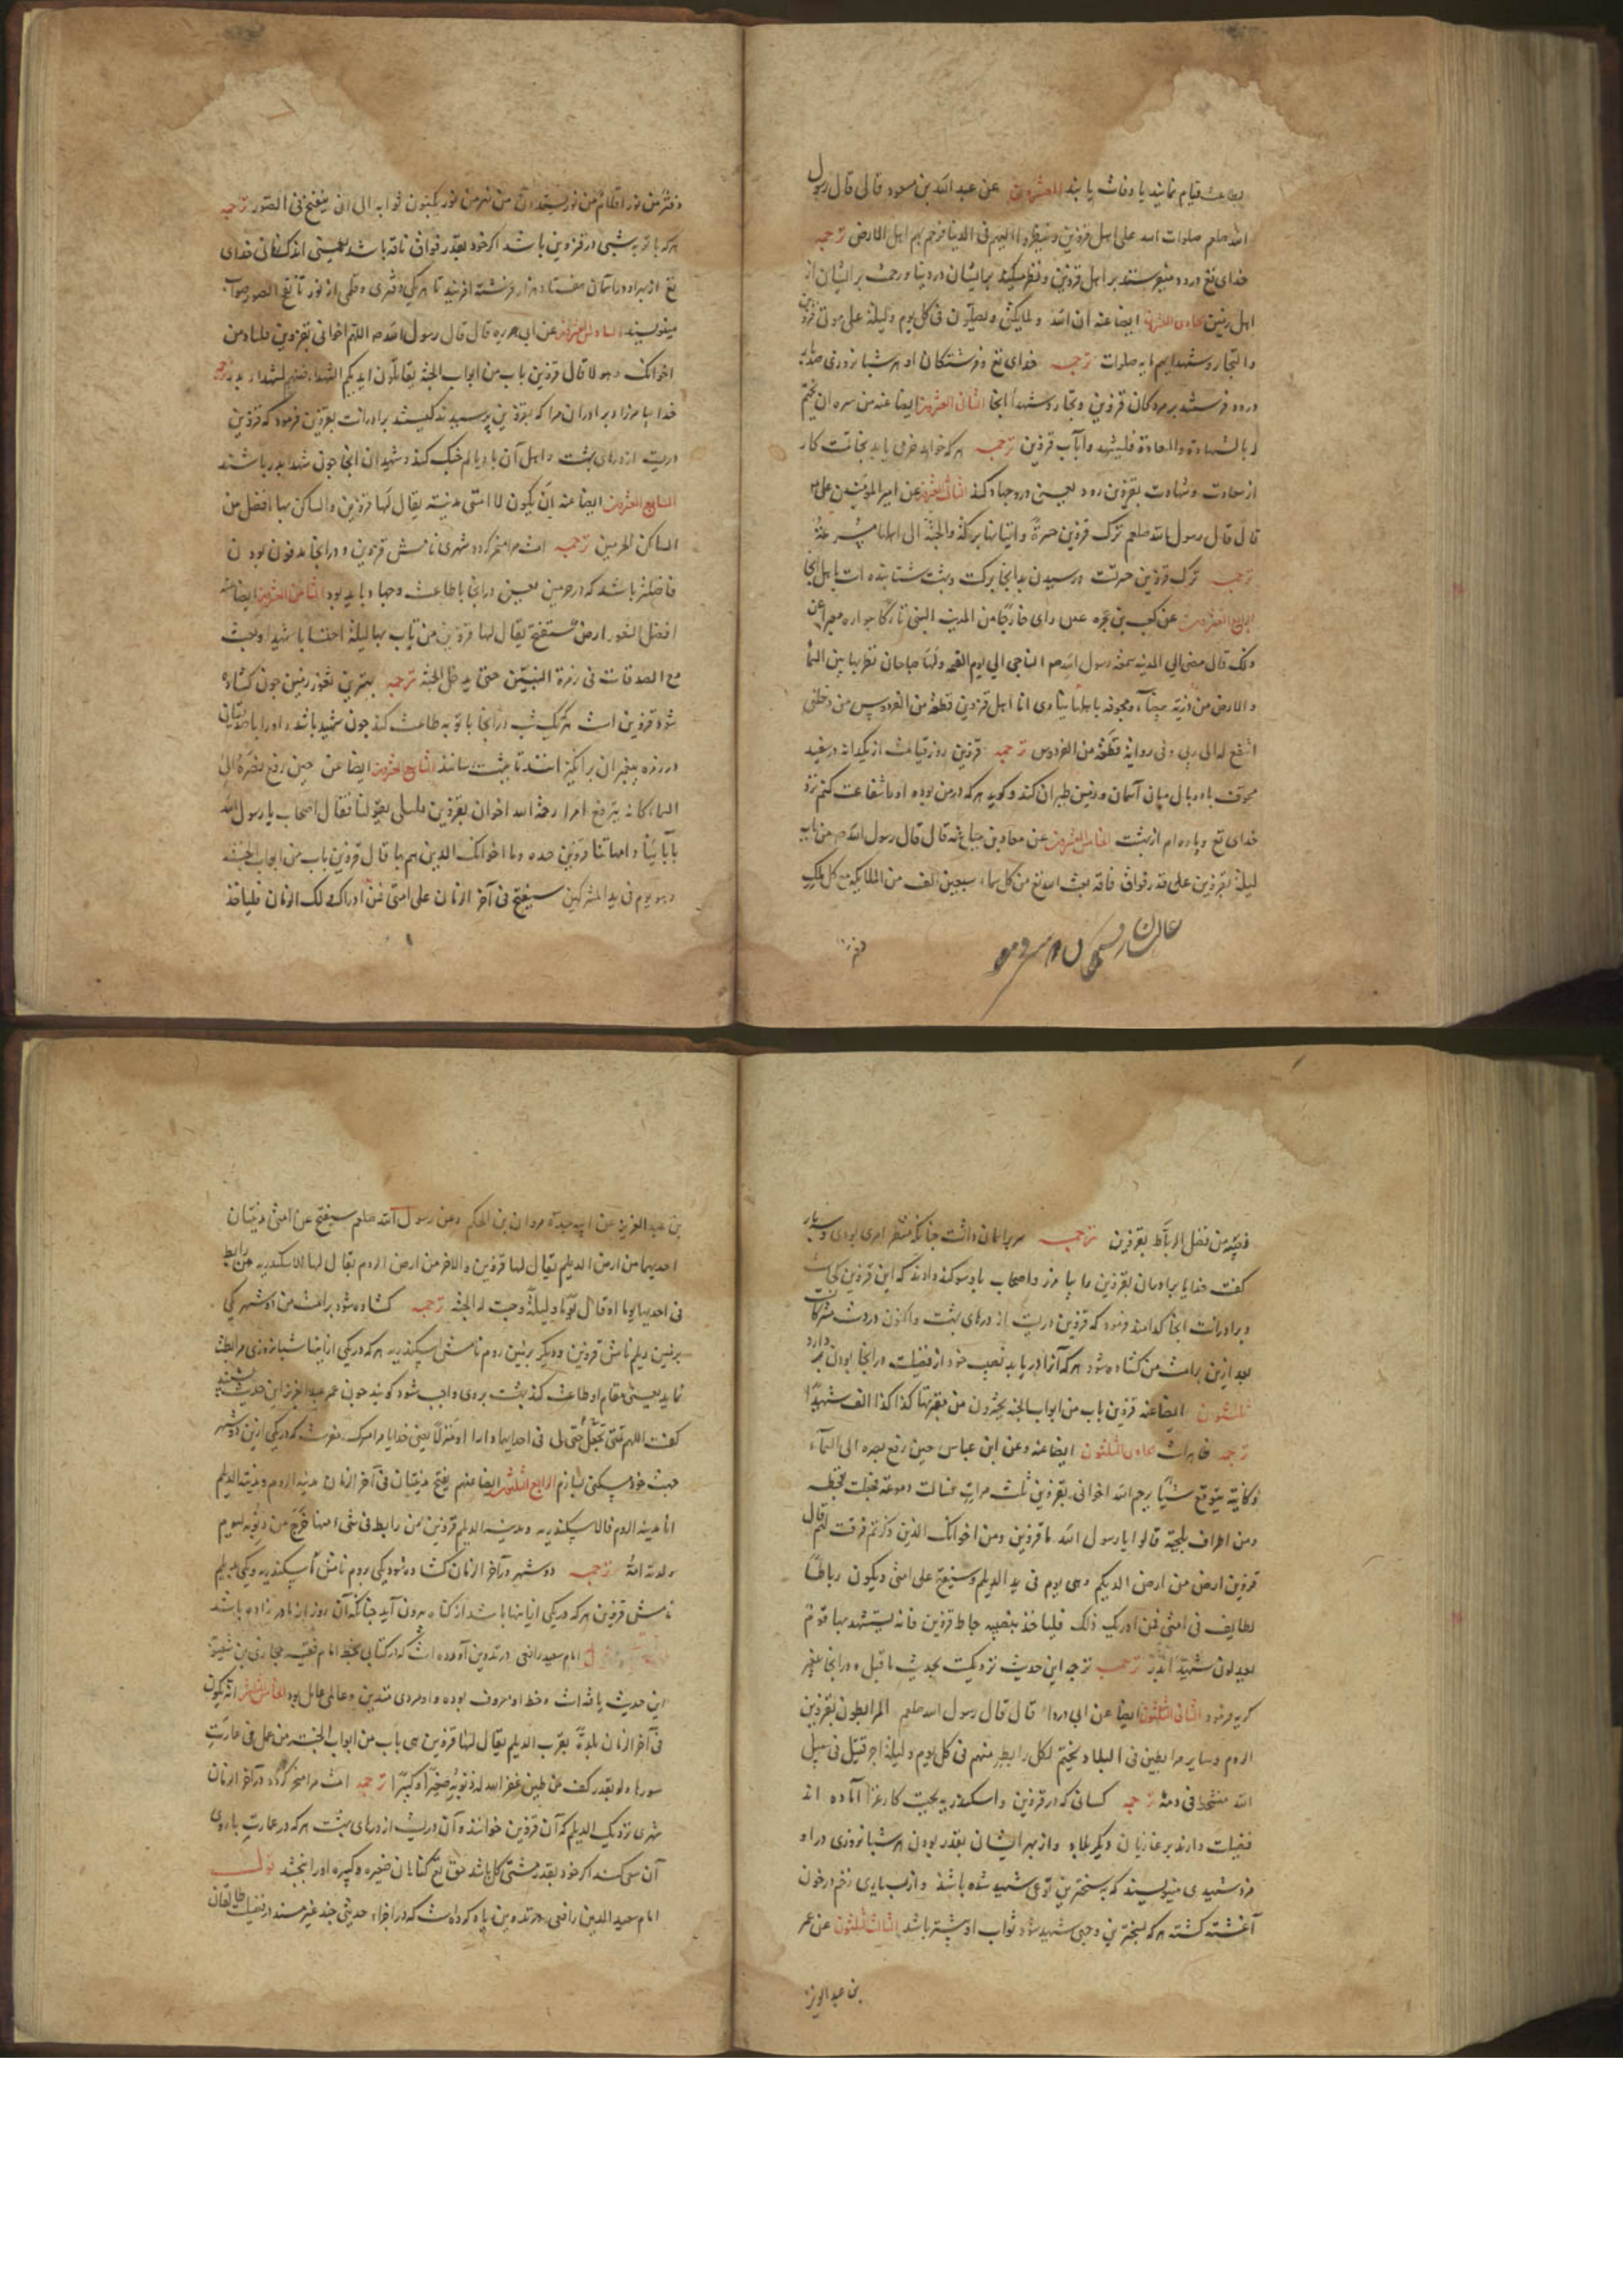 بطاعت قیام نمایند یا وفات یابند العشرون عن عبد الله بن مسعود قال قال رسول
الله صلعم صلوات الله علی اهل قزوین و ینظر الیهم فی الدنیا فرحم بهم اهل الارض ترجمه
خدای تع درود میفرستد بر اهل قزوین و نظر میکند بدیشان در دنیا و رحمت بر ایشان از
اهل زمین ایضا عنه ان الله و ملایکته یصلون فی کل یوم و لیلة علی موتی قزوین
و التجار و شهدایهم مایه صلوات ترجمه خدای تع و فرشتکان او هر شبانروزی صد بار
درود فرستند بر مردکان قزوین و تجار و شهداء آنجا الثانی العشرون ایضا عنه من سره ان یختم
له بالشهادة و السعادة فلیشهد باب قزوین ترجمه هر که خواهد خدای باید بخاتمت کار
از سعادت و شهادت بقزوین رود یعنی درو جهاد کند الثالث العشرون عن امیر المؤمنین علی
قال قال رسول الله صلعم ترک قزوین حسرة و اتیانها برکة و الجنة الی اهلها
ترجمه ترک قزوین حسرتست و رسیدن بدانجا برکت و بهشت شتابنده است باهل آنجا
الرابع العشرون عن کعب بن عجره رای خارجا من المدینة النبی تارکا جواره
ذلک قال مضی الی المدینه سمعته رسول الله صم الناجی الی یوم القیمه و لها جناحان تطیر بها بین السماء
و الارض من درة بیضاء مجوفه باهلها ینادی انا اهل قزوین قطعة من الفردوس من دخلنی
اشفع له الی ربی و فی روایة قطعة من الفردوس ترجمه قزوین روز قیامت از یکدانه در سفید
مجوفست با دو بال میان آسمان و زمین طیران کند و کوید هر که در من بوده او را شفاعت کنم نزد
خدای تع و پاره ام از بهشت الخامس العشرون عن معاذ بن جبل عنه قال قال رسول الله صم من بات
لیلة بقزوین علی قدر فواق ناقة بعث الله تع من کل سماء سبعین الف من الملایکة مع کل ملک
دفتر من نور و اقلام من نور یستمدون من نهر من نور یکتبون ثوابه الی ان ینفخ فی الصور ترجمه
هر که با توبه شبی در قزوین باشد اکر خود بقدر فواق ناقه باشد یعنی اندک زمانی خدای
تع از هر آسمان هفتاد هزار فرشته آفریند تا هر یکی دفتری و قلمی از نور تا نفخ الصور ثواب
مینویسند السادس العشرون عن ابی هریره قال قال رسول الله صم اللهم اخوانی بقزوین قلنا و من
اخوانک و هولا قال قزوین باب من ابواب الجنة یقاتلون الدیلم الشهداء فیهم کشهداء بدر ترجمه
خدا بیامرزاد برادران مرا که بقزوین پرسیدند کیستند برادرانت بقزوین فرمود که قزوین
دریست از درهای بهشت و اهل آن با دیالم جنک کنند و شهیدان آنجا چون شهداء بدر باشند
السابع العشرون ایضا عنه ان یکون لامتی مدینته یقال لها قزوین و الساکن بها افضل من
الساکن الحرمین ترجمه امت مرا مسخر کردد شهری نامش قزوین و در آنجا مدفون بودن
فاضلتر باشد که در حرمین یعنی در آنجا با طاعت و جهاد باید بود الثامن العشرون ایضا عنه
افضل الثغور ارض ستفتح یقال لها قزوین من بات بها لیلة احتسابا مات شهیدا و بعث
مع الصدیقات فی زمرة النبیین حتی یدخل الجنة ترجمه بهترین ثغور زمین چون کشاده
شود قزوین است هر که یک شب در آنجا با توبه طاعت کند چون شهید باشد و او را با صدیقان
در زمره پیغمبران برانکیزانند تا ببهشت رسانند التاسع العشرون ایضا عن حین رفع بصره الی
السماء کانه یترقع امرا رحمة الله اخوان بقزوین فقال اصحاب یا رسول الله
بابائنا و امهاتنا قزوین هذه وما اخوانک الذین هم بها قال قزوین باب من ابواب الجنة
و هو یوم فی ید المشرکین سیفتح فی آخر الزمان علی امتی فمن ادرک ذلک الزمان فلیاخذ
نصیبه من فضل الرباط بقزوین ترجمه سر بر آسمان داشت چنانکه منتظر امری بودی
کفت خدایا برادران بقزوین را بیامرز و اصحاب یاد سوکند دادند که این قزوین کجاست
و برادرانت آنجا کدامند فرمود که قزوین دریست از درهای بهشت و اکنون در دست مشرکانست
بعد ازین بر امت من کشاده شود هر که آنرا دریابد نصیب خود از فضیلت در آنجا بودن بردارد
ثلثون ایضا عنه قزوین باب من ابواب الجنة یحشرون من مقبرتها کذا کذا الف شهیدا
ترجمه ظاهرات حادی الثلثون ایضا عنه و عن ابن عباس حین رفع بصره الی السماء
و کانه یتوقع شیا یرحم الله اخوانی بقزوین ثلث مرات فسالت دموعه فجعلت
و من اطراف لحیته قالوا یا رسول الله ما قزوین و من اخوانک الذین ذکرتم فرقت لهم قال
قزوین ارض من ارض الدیلم و هی یوم فی ید الدیلم و ستفتح علی امتی و یکون رباطا
لطایف فی امتی فمن ادرک ذلک فلیاخذ بنصیبه رباط قزوین فانه یستشهد بها قوم
یعدلون شهداء بدر ترجمه ترجمه این حدیث نزدیکست بحدیث ما قبل و در آنجا پیغمبر
کریه فرمود الثانی الثلثون ایضا عن ابی دردا قال قال رسول الله صلعم المرابطون بقزوین
الروم و سایر مرابطین فی البلاد یختم لکل رابط منهم فی کل یوم و لیلة اجر قتیل فی سبیل
الله متشحط فی دمه ترجمه کسانی که در قزوین و اسکندریه بجهت کار غزا آماده اند
فضیلت دارند بر غازیان دیکر بلاد و از بهر ایشان بقدر بودن هر شبانروزی در او
مزد شهیدی مینویسند که بسخترین نوعی شهید شده باشد و از بسیاری زخم در خون
آغشته کشته هر که بسخترین وجهی شهید شود ثواب او بیشتر باشد الثالث الثلثون عن عمر
بن عبد العزیز
بن عبد العزیز عن ابیه جده مروان بن الحکم و عن رسول الله صلعم سیفتح علی امتی مدینتان
احدیهما من ارض الدیلم یقال لها قزوین و الاخر من ارض الروم یقال لها الاسکندریه من رابط
فی احدیهما یوما او قال یوما و لیلة وجبت له الجنة ترجمه کشاده شود بر امت من دو شهر یکی
بزمین دیلم نامش قزوین و دیکر بزمین روم نامش اسکندریه هر که در یکی از اینها شبانروزی مرابطت
نماید یعنی مقام و طاعت کند بهشت بر وی واجب شود کویند چون عمر عبد العزیز این حدیث بشنید
کفت اللهم لا تمتنی حتی تجعل لی فی احدیهما دارا و منزلا یعنی خدایا مرا مرک مفرست که در یکی ازین دو شهر
جهت خود مسکنی بسازم الرابع الثلثون ایضا عنهم یفتح مدینتان فی آخر الزمان مدینه الروم و مدینه الدیلم
اما مدینه الروم فالاسکندریه و مدینه الدیلم قزوین من رابط فی شی منهما خرج من ذنوبه کیوم
ولدته امه ترجمه دو شهر در آخر الزمان کشاده شود یکی بروم نامش اسکندریه و یکی بدیلم
نامش قزوین هر که در یکی از اینها باشد از کناه بیرون آید چنانکه آن روز از مادر زاده باشد
امام سعید رافعی در تدوین آورده است که در کتابی بخط امام فقیه حجازی بن شعبویه
این حدیث یافته است و خط او معروف بوده و او مردی متدین و عالمی عامل بود الخامس الثلثون انه یکون
فی آخر الزمان بلدة بقرب الدیلم یقال لها قزوین هی باب من ابواب الجنة من عمل فی عمارت
سورها ولو بقدر کف من طین غفر الله له ذنوبه صغیرا و کبیرا ترجمه امت مرا مسخر کردد در آخر الزمان
شهری نزدیک الدیلم که آن قزوین خوانند و آن دریست از درهای بهشت هر که در عمارت باروی
آن سعی کند اکر خود بقدر مشتی کل باشد حق تع کناهان صغیره و کبیره او را ببخشد
امام سعید الدین رافعی در تدوین یاد کرده است که در اجزاء حدیثی چند غیر مسند در فضیلت طالقان